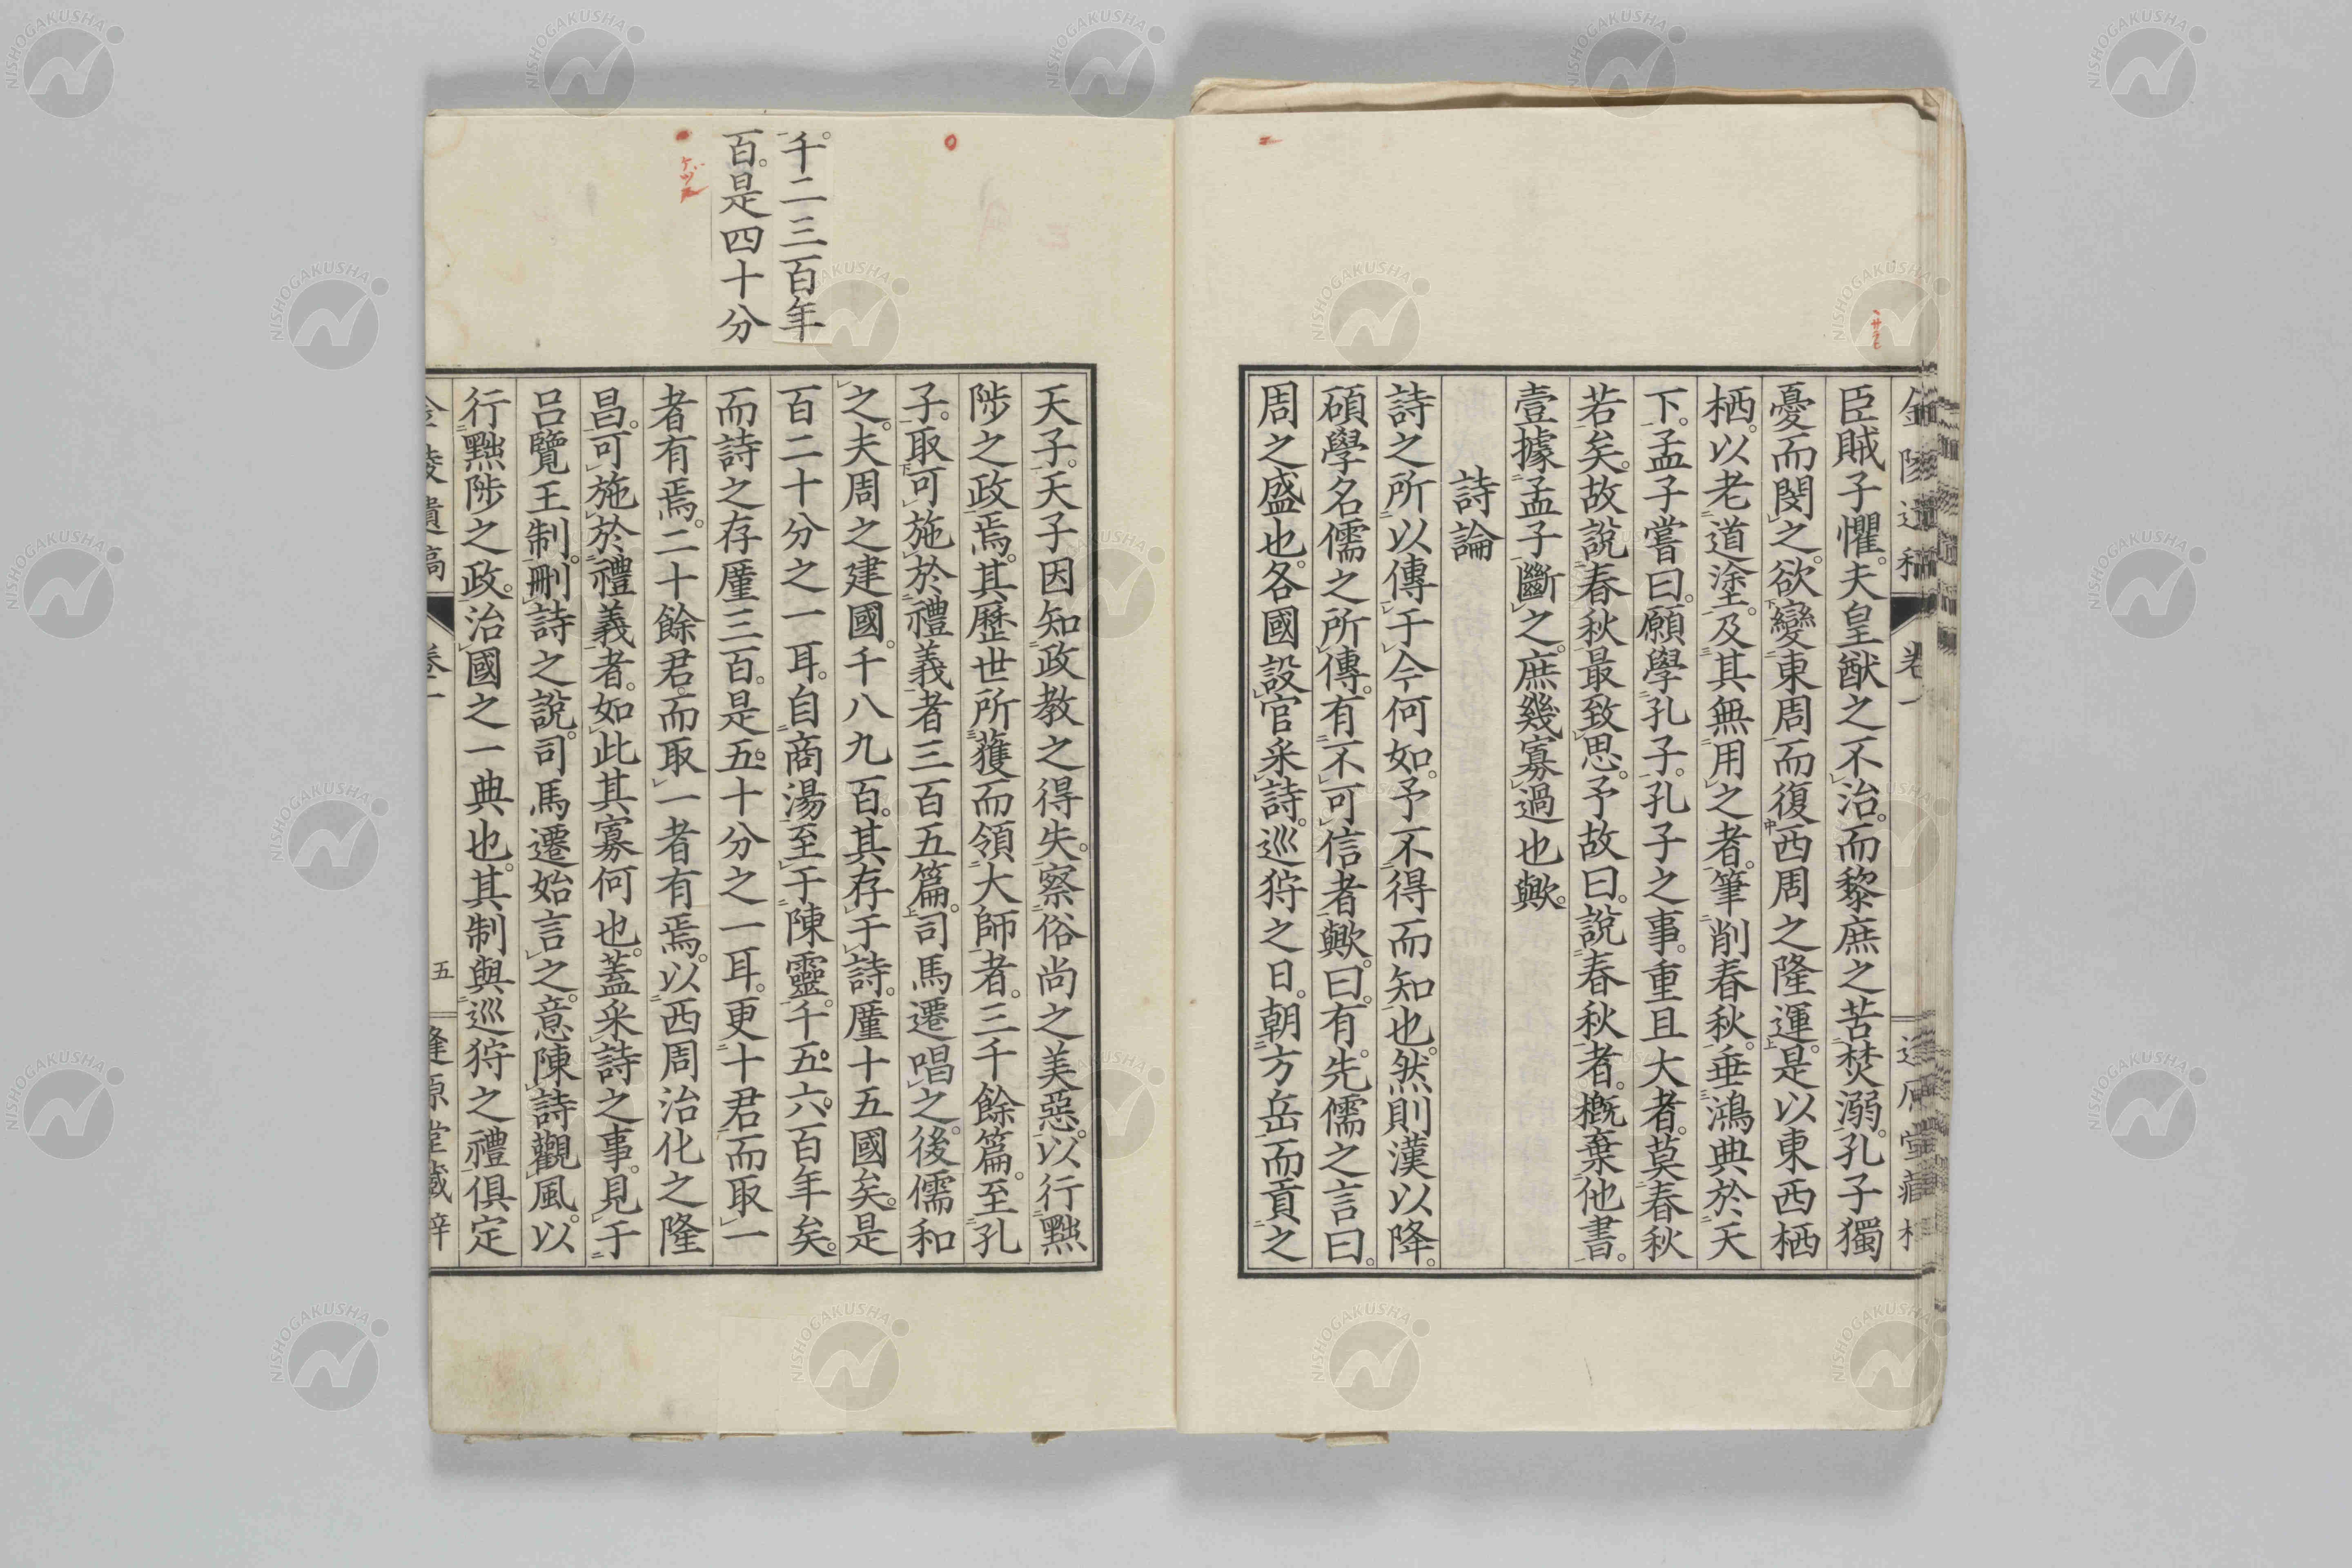 臣賊子懼。夫皇猷之不治。而黎庶之苦焚溺。孔子獨
憂而閔之。欲變東周而復西周之隆運。是以東西栖
栖。以老道塗。及其無用之者。筆削春秋。垂鴻典於天
下。孟子嘗曰。願學孔子。孔子之事。重且大者。莫春秋
若矣。故說春秋最致思。予故曰。說春秋者。概棄他書。
壹據孟子斷之。庶幾寡過也歟。
詩論
詩之所以傳于今何如。予不得而知也。然則漢以降。
碩學名儒之所傳。有不可信者歟。曰。有。先儒之言曰。
周之盛也。各國設官采詩。巡狩之日。朝方岳而貢之
千二三百年
百。是四十分
天子。天子因知政教之得失。察俗尚之美惡。以行黜
陟之政焉。其歷世所獲而領大師者。三千餘篇。至孔
子。取可施於禮義者三百五篇。司馬遷唱之。後儒和
之。夫周之建國。千八九百。其存于詩。厪十五國矣。是
百二十分之一耳。自商湯至于陳靈。千五六百年矣。
而詩之存厪三百。是五十分之一耳。更十君而取一
者有焉。二十餘君而取一者有焉。以西周治化之隆
昌。可施於禮義者。如此其寡何也。蓋采詩之事。見于
呂覽王制。刪詩之說。司馬遷始言之。意陳詩觀風。以
行黜陟之政。治國之一典也。其制與巡狩之禮俱定
五
NISHOGAKUSHA